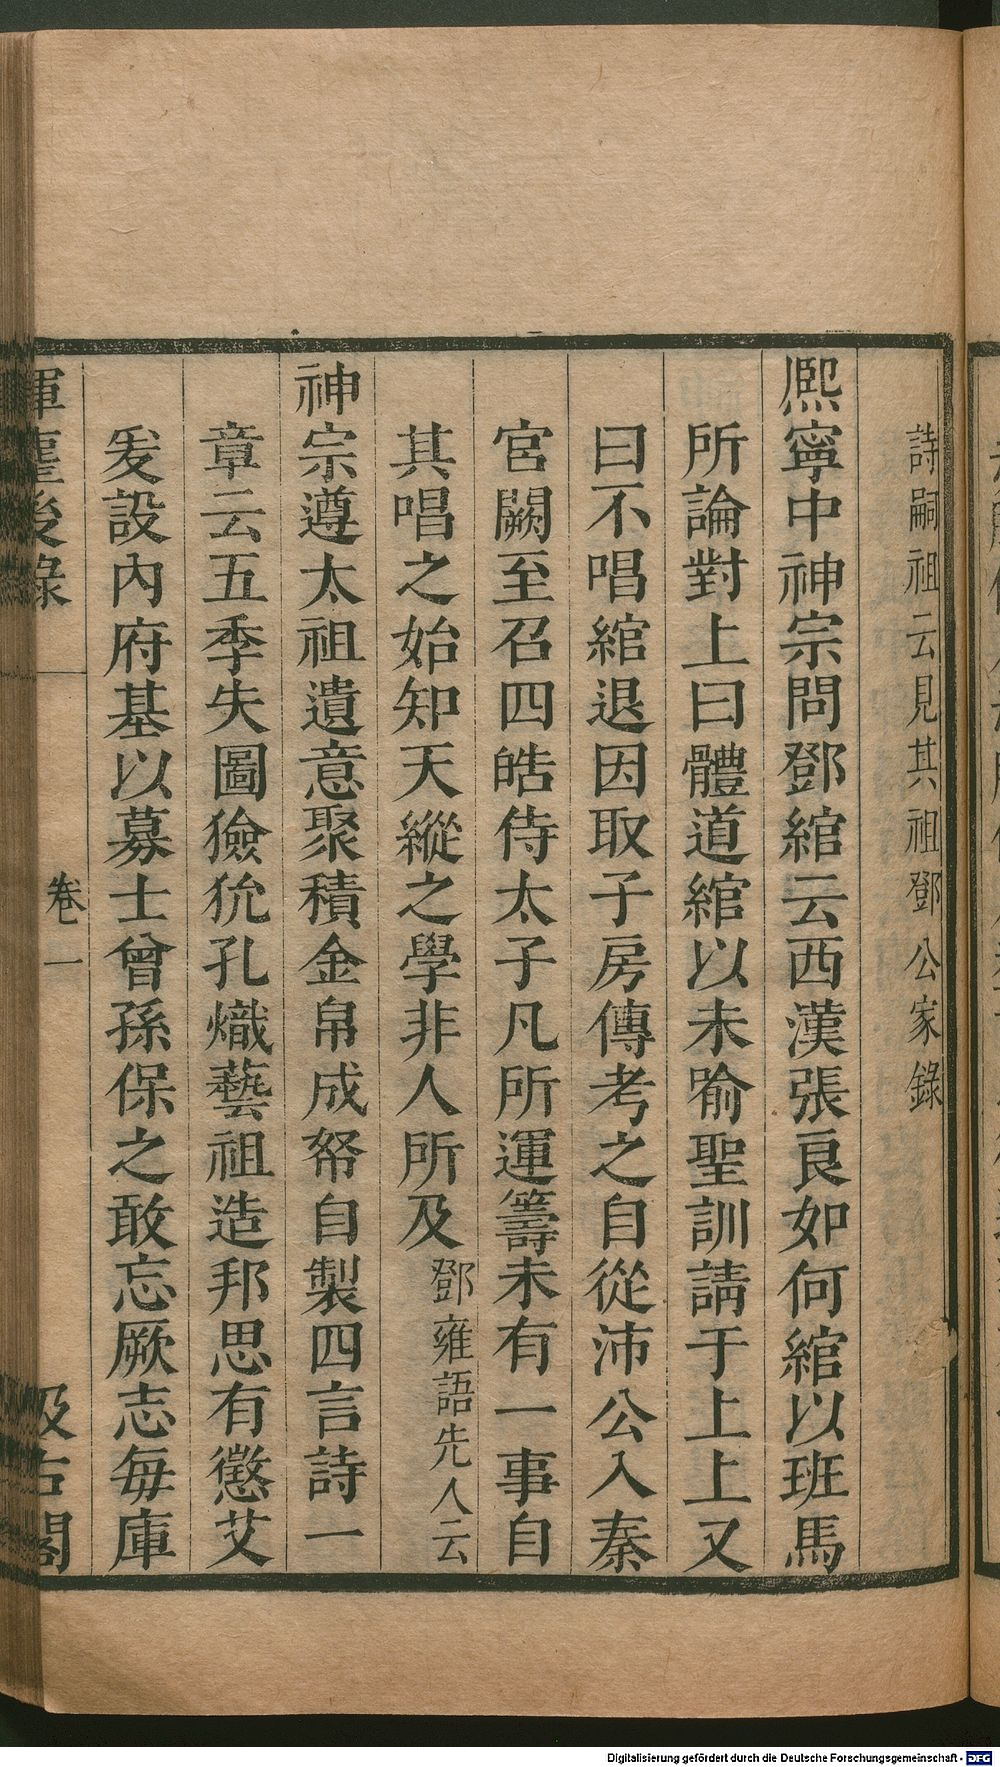 詩嗣祖云見其祖鄧公家錄
熈寧中神宗問鄧綰云西漢張良如何綰以班馬
所論對上曰體道綰以未喻聖訓請于上上又
曰不唱綰退因取子房傳考之自從沛公入秦
宮闕至召四皓侍太子凡所運籌未有一事自
其唱之始知天縱之學非人所及鄧雍語先人云
神宗遵太祖遺意聚積金帛成帑自製四言詩一
章云五季失圖獫狁孔熾藝祖造邦思有懲艾
爰設內府基以募士曾孫保之敢忘厥志每庫
揮麈後錄 卷一 汲古閣
Digitalisierung gefördert durch die Deutsche Forschungsgemeinschaft - DFG